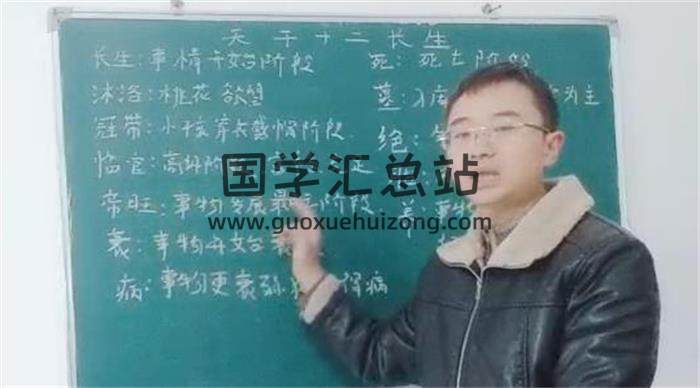 天干十二长生
长生:事情开始阶段
沐浴:桃花欲望
冠带:小孩穿衣戴帽阶段
临官:高升阶
帝旺:事物发展最 阶段
衰:事物开始衰
病:事物更衰弱 得病
死:死亡阶段
墓:入库 为主
绝:
事物
国学汇总站
www.guoxuehuizong.com